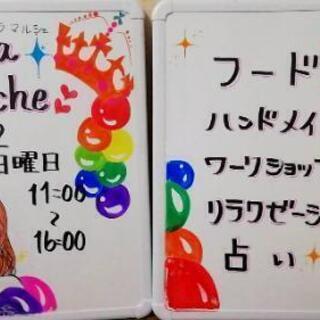 ラ マルシェ
a
che
2
日曜日
11:00
〜
16:00
フード
ハンドメイ
ワークショップ
リラクゼーシ
占い